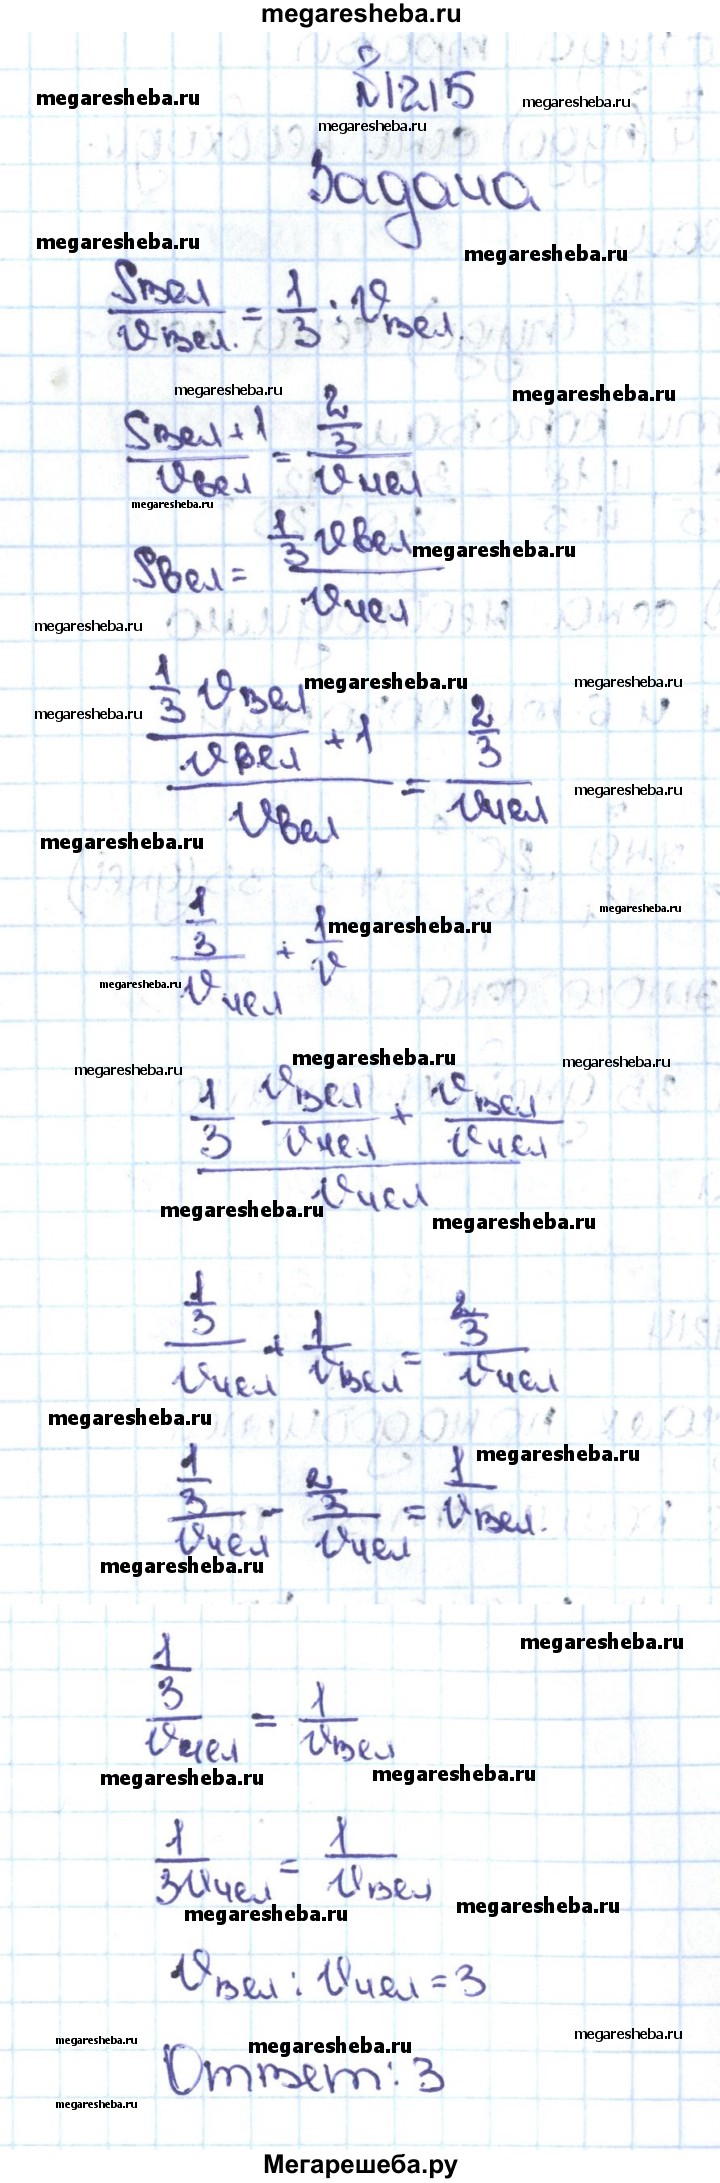 megaresheba.ru
№1215
megaresheba.ru
megaresheba.ru
megaresheba.ru
Задача
megaresheba.ru
megaresheba.ru
Sвел/vвел. = 1/3 : vвел.
megaresheba.ru
megaresheba.ru
Sвел+1/vвел = 2/3/vчел
megaresheba.ru
Sвел = 1/3 vвел/vчел
megaresheba.ru
megaresheba.ru
1/3 vвел/vвел + 1/vвел = 2/3/vчел
megaresheba.ru
megaresheba.ru
megaresheba.ru
megaresheba.ru
megaresheba.ru
1/3/vчел + 1/v
megaresheba.ru
megaresheba.ru
megaresheba.ru
megaresheba.ru
megaresheba.ru
megaresheba.ru
1/3 vвел/vчел + vвел/vчел/vчел
megaresheba.ru
megaresheba.ru
1/3/vчел + 1/vвел = 2/3/vчел
megaresheba.ru
megaresheba.ru
1/3/vчел - 2/3/vчел = 1/vвел.
megaresheba.ru
megaresheba.ru
1/3/vчел = 1/vвел
megaresheba.ru
megaresheba.ru
1/3vчел = 1/vвел
megaresheba.ru
megaresheba.ru
vвел : vчел = 3
megaresheba.ru
megaresheba.ru
megaresheba.ru
Ответ: 3
megaresheba.ru
Мегарешеба.ру